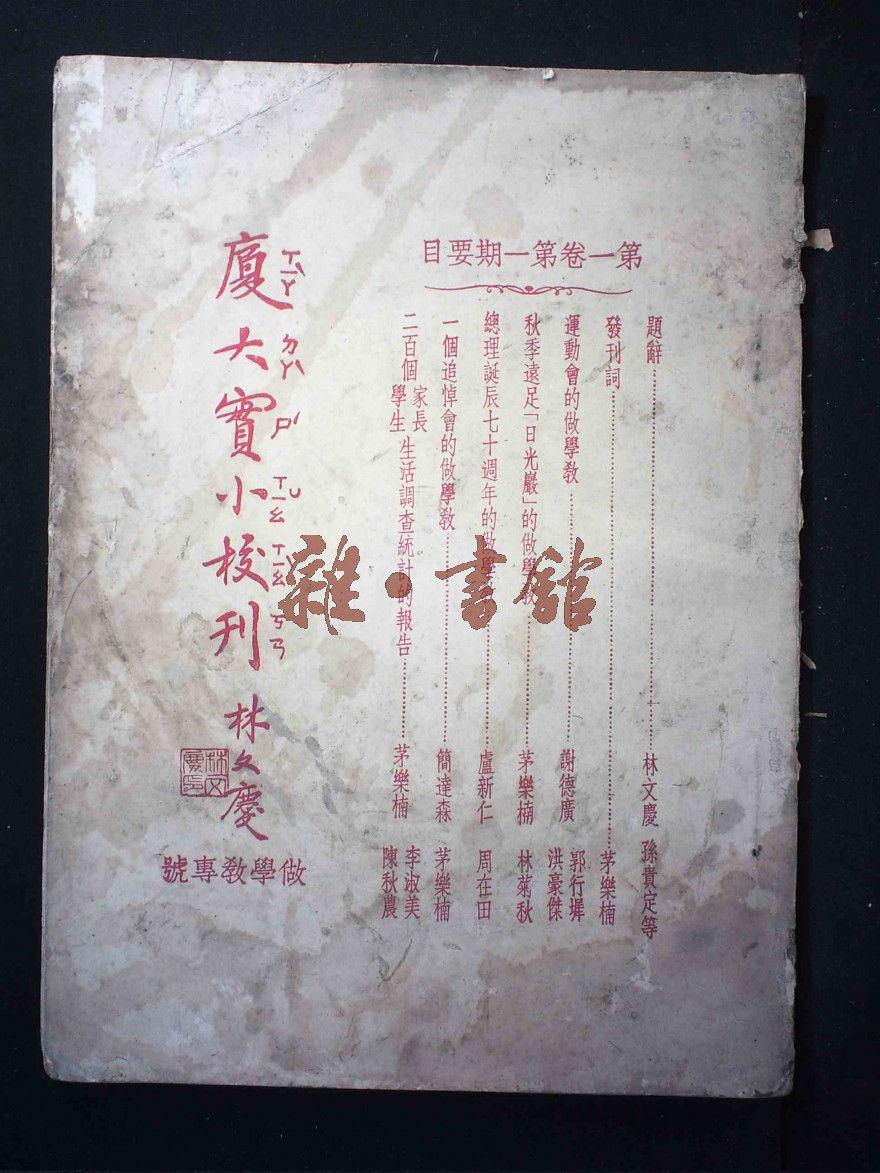 第一卷第一期要目
題辭……林文慶 孫貴定等
發刊詞……茅樂楠
運動會的做學教……謝德廣 郭行墀 洪豪傑
秋季遠足「日光巖」的做學教……茅樂楠 林菊秋
總理誕辰七十週年的做學教……盧新仁 周在田
一個追悼會的做學教……簡達森 茅樂楠
二百個 家長 學生 生活調查統計的報告……茅樂楠 李淑美 陳秋農
廈大實小校刊
ㄒㄧㄚˋ ㄉㄚˋ ㄕˊ ㄒㄧㄠˇ ㄒㄧㄠˋ ㄎㄢ
林文慶
林文慶印
做學教專號
雜·書館